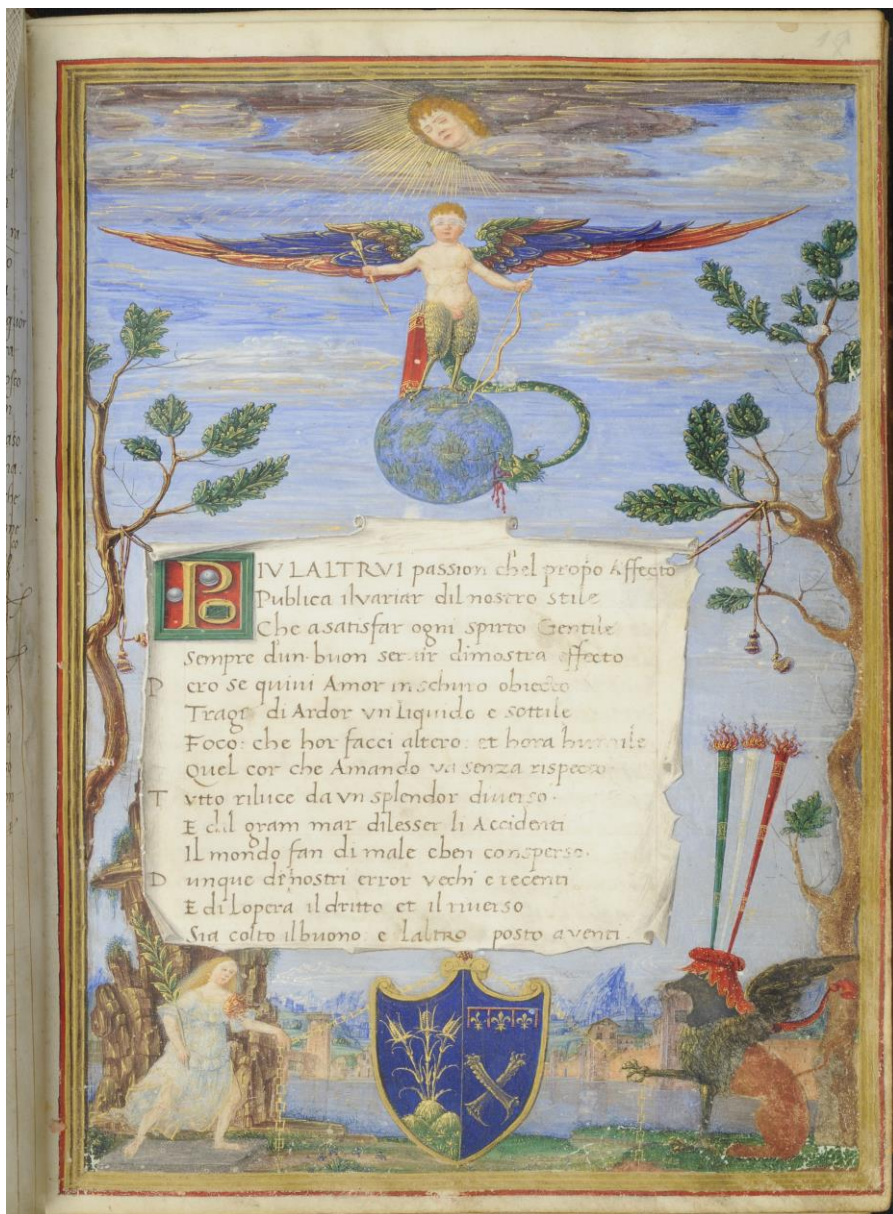 PIV LALTRVI passion ch'el propo Affecto
Publica il variar dil nostro stile
Che a satisfar ogni spirto Gentile
Sempre d'un buon servir dimostra effecto
Pero se quivi Amor in schuro obiecto
Tragi di Ardor vn Liquido e sottile
Foco: che hor facci altero: et hora humile
Quel cor che Amando va senza rispecto
Tvtto riluce da vn splendor diverso.
E dil gram mar dilesser li Accidenti
Il mondo fan di male e ben consperso.
Dunque di nostri error vechi e recenti
E di lopera il dritto et il riuerso
Sia colto il buono: e laltro posto a venti.